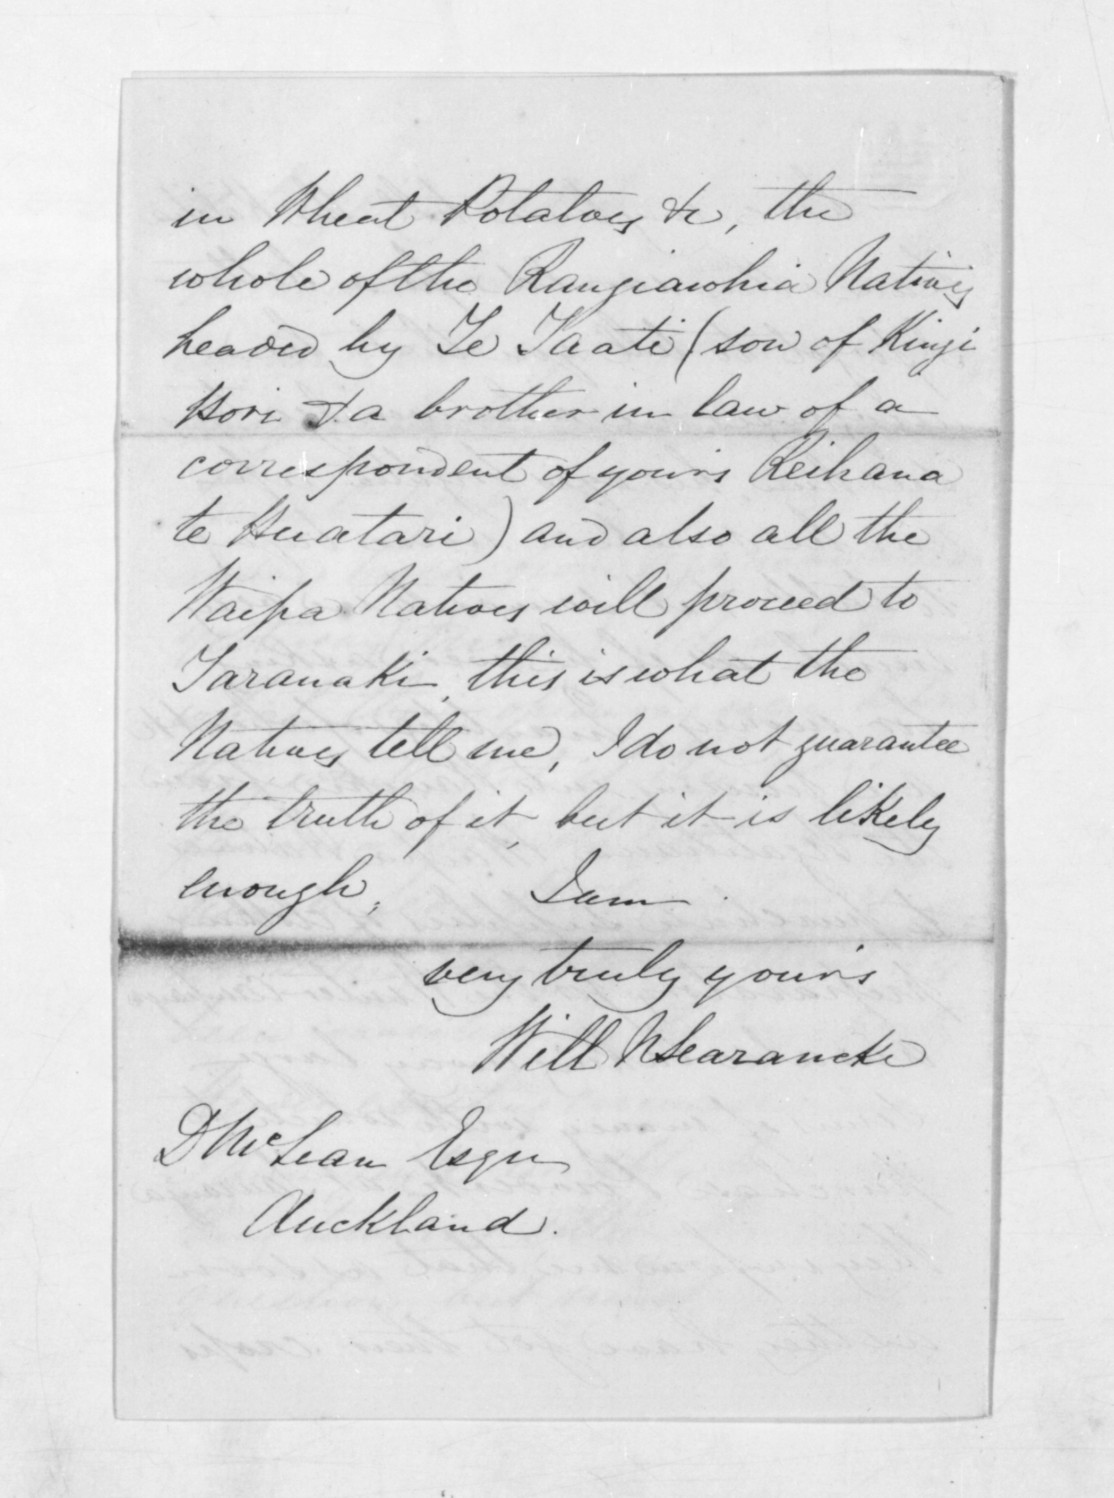 in Wheat Potatoes &c, the
whole of the Rangiawhia Natives
headed by Te Taati (son of Kingi
Hori & a brother in law of a
correspondent of yours Reihana
te Huatari) and also all the
Waipa Natives will proceed to
Taranaki, this is what the
Natives tell me, I do not guarantee
the truth of it, but it is likely
enough,
I am
very truly yours
Will N Searancke
D McLean Esqre
Auckland.